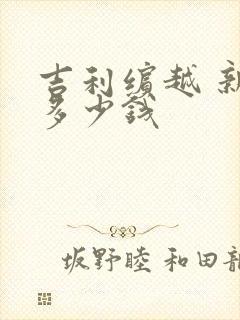 吉利缤越 新
多少钱
坂野睦 和田龍